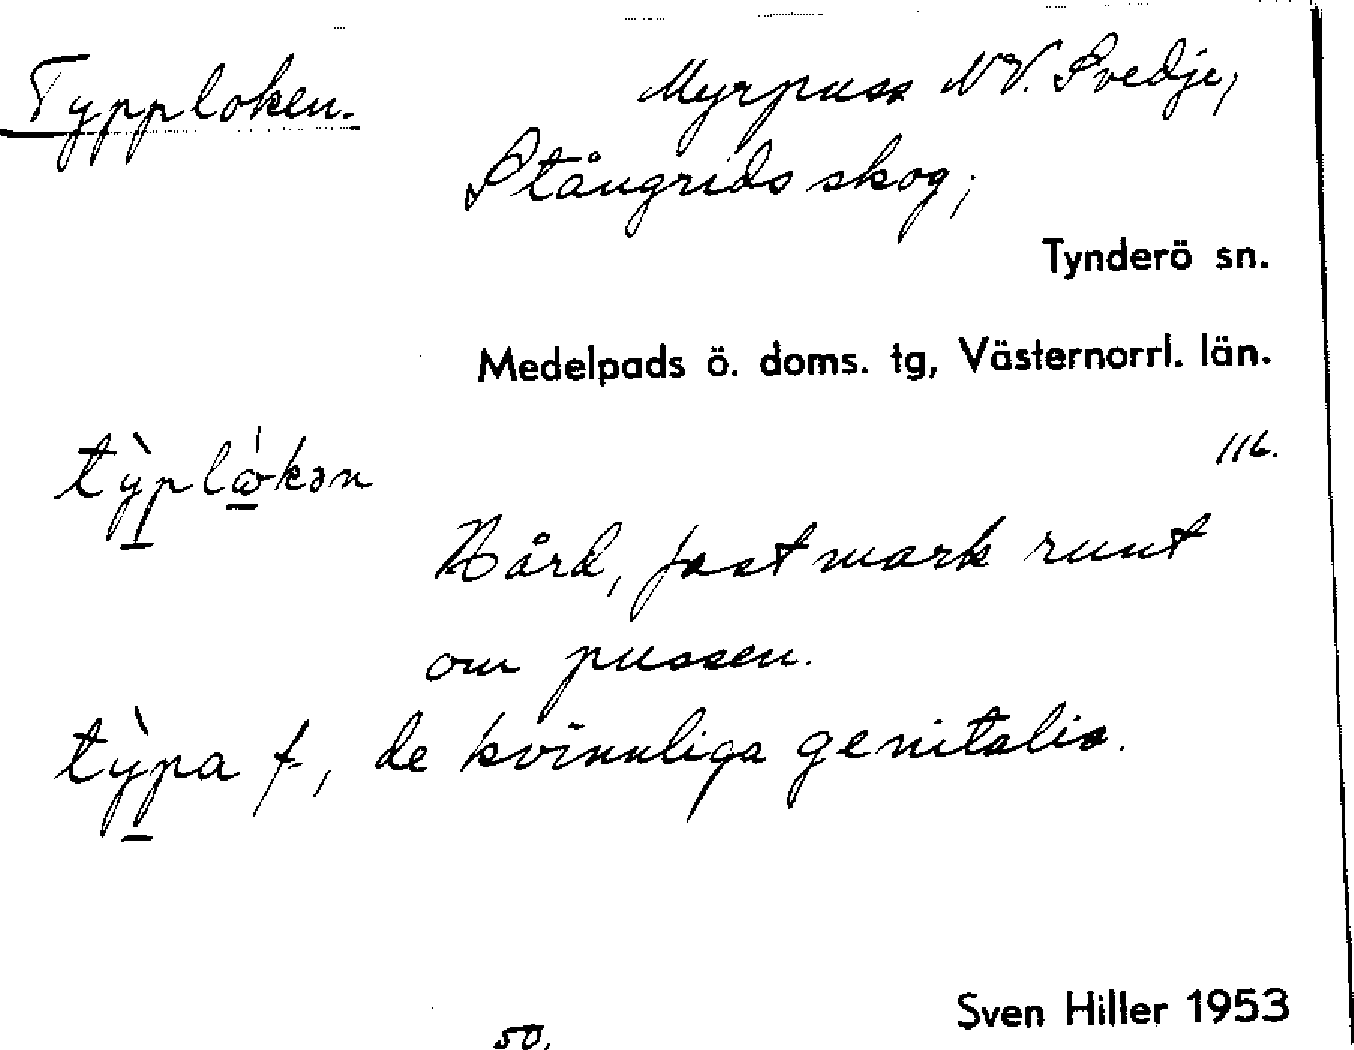 Typploken. Myrpuss NV. Svedje,
Stångrids skog;
Tynderö sn.
Medelpads ö. doms. tg, Västernorrl. län.
116.
Hård, fast mark runt
om pussen.
tỳpa f, de kvinnliga genitalia.
Sven Hiller 1953
50.